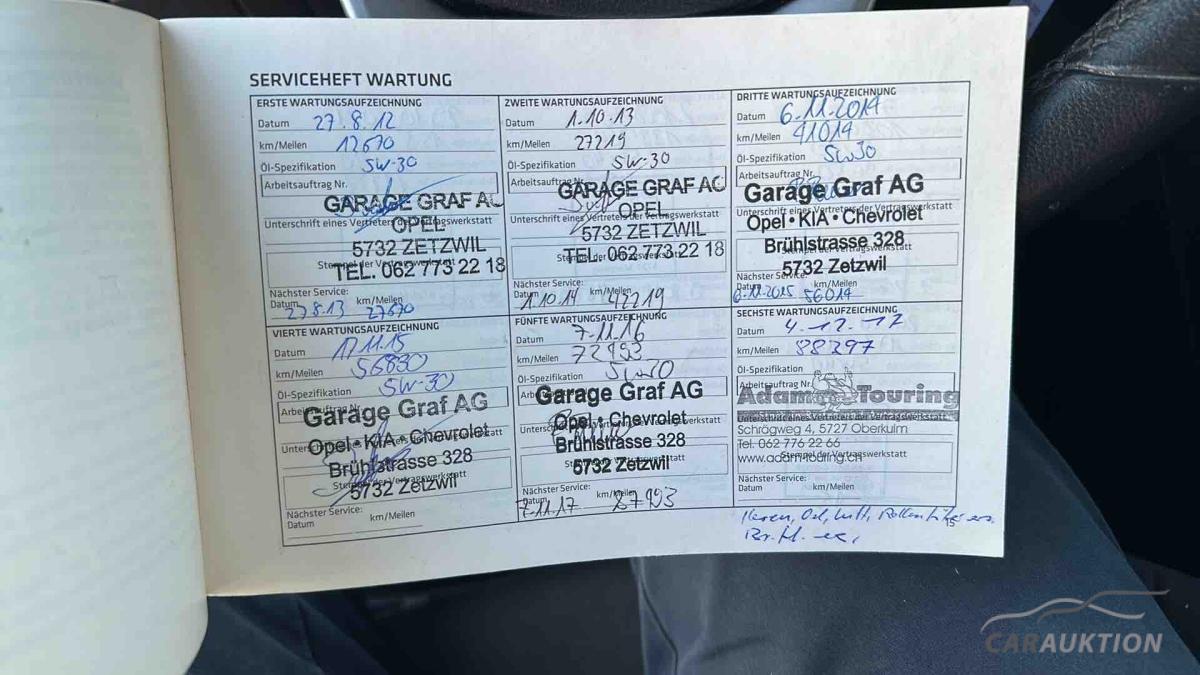 SERVICEHEFT WARTUNG
ERSTE WARTUNGSAUFZEICHNUNG
Datum 27.8.12
km/Meilen 12670
Öl-Spezifikation 5W-30
Arbeitsauftrag Nr.
GARAGE GRAF AG
Unterschrift eines Vertreters der Vertragswerkstatt
OPEL
5732 ZETZWIL
Stempel der Vertragswerkstatt
TEL. 062 773 22 18
Nächster Service:
Datum 27.8.13 km/Meilen 27670
ZWEITE WARTUNGSAUFZEICHNUNG
Datum 1.10.13
km/Meilen 27219
Öl-Spezifikation 5W-30
Arbeitsauftrag Nr.
GARAGE GRAF AG
Unterschrift eines Vertreters der Vertragswerkstatt
OPEL
5732 ZETZWIL
Stempel der Vertragswerkstatt
TEL. 062 773 22 18
Nächster Service:
Datum 1.10.14 km/Meilen 42219
DRITTE WARTUNGSAUFZEICHNUNG
Datum 6.11.2014
km/Meilen 41014
Öl-Spezifikation 5W30
Arbeitsauftrag Nr.
Garage Graf AG
Unterschrift eines Vertreters der Vertragswerkstatt
Opel • KIA • Chevrolet
Brühlstrasse 328
Stempel der Vertragswerkstatt
5732 Zetzwil
Nächster Service:
Datum 6.11.2015 km/Meilen 56014
VIERTE WARTUNGSAUFZEICHNUNG
Datum 17.11.15
km/Meilen 56830
Öl-Spezifikation 5W-30
Arbeitsauftrag Nr.
Garage Graf AG
Opel • KIA • Chevrolet
Brühlstrasse 328
Stempel der Vertragswerkstatt
5732 Zetzwil
Nächster Service:
Datum km/Meilen
FÜNFTE WARTUNGSAUFZEICHNUNG
Datum 7.11.16
km/Meilen 72993
Öl-Spezifikation
Garage Graf AG
Opel • Chevrolet
Brühlstrasse 328
5732 Zetzwil
Nächster Service:
Datum 7.11.17 km/Meilen 87993
SECHSTE WARTUNGSAUFZEICHNUNG
Datum 4.12.17
km/Meilen 88297
Öl-Spezifikation
Arbeitsauftrag Nr.
Adam Touring
Unterschrift eines Vertreters der Vertragswerkstatt
Schrägweg 4, 5727 Oberkulm
Tel. 062 776 22 66
www.adam-touring.ch
Stempel der Vertragswerkstatt
Nächster Service:
Datum km/Meilen
15
CARAUKTION